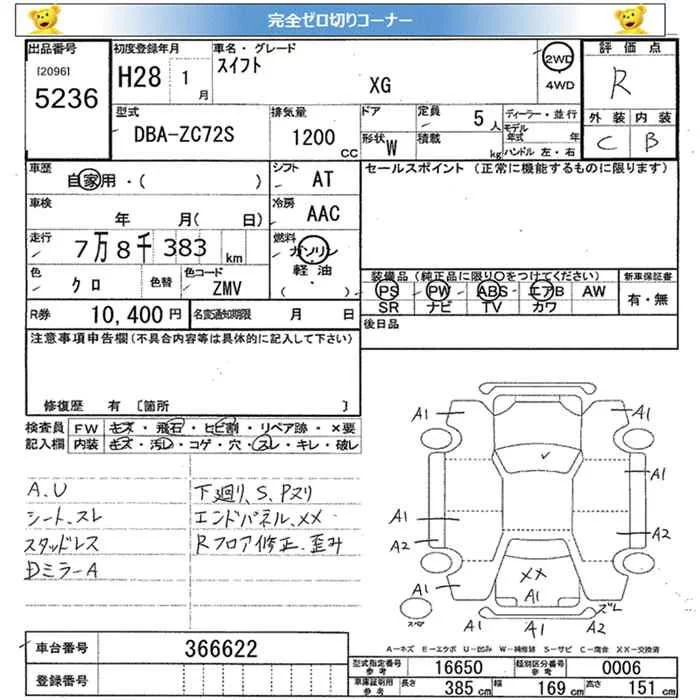 完全ゼロ切りコーナー
出品番号
[2096]
5236
初度登録年月
H28 1 月
車名・グレード
スイフト
XG
2WD
4WD
評価点
R
型式
DBA-ZC72S
排気量
1200 CC
ドア
形状 W
定員 5 人
積載 kg
ディーラー・並行
モデル年式 年
ハンドル 左・右
外装 内装
C B
車歴
自家用・( )
シフト AT
車検
年 月( 日)
冷房 AAC
走行
7万8千383 km
燃料
ガソリン
軽油
( ・ )
色 クロ 色替
色コード ZMV
R券 10,400円
名変通知期限 月 日
セールスポイント (正常に機能するものに限ります)
装備品 (純正品に限り○をつけてください)
PS PW ABS エアB AW
SR ナビ TV カワ
新車保証書
有・無
後日品
注意事項申告欄(不具合内容等は具体的に記入して下さい)
修復歴 有 〔箇所 〕
検査員記入欄
FW キズ・飛石・ヒビ割・リペア跡・×要
内装 キズ・汚レ・コゲ・穴・スレ・キレ・破レ
A.U
シート.スレ
スタッドレス
Dミラー A
下廻リ、S、Pヌリ
エンドパネル.XX
Rフロア修正.歪み
A1 A1
A1
A1
A2 A2
XX
A1
A1 A1
ズレ
スペア
A1
A-キズ E-エクボ U-凹み W-補修跡 S-サビ C-腐食 XX-交換済
車台番号 366622
登録番号
型式指定番号 参考 16650
類別区分番号 参考 0006
車庫証明用 参考 長さ 385 cm 幅 169 cm 高さ 151 cm